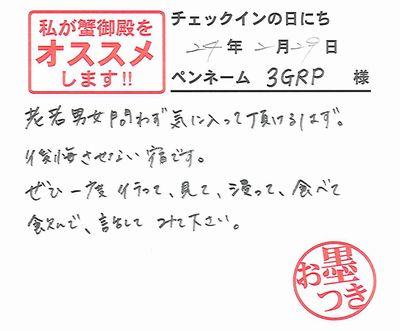 私が蟹御殿を
オススメ
します!!
チェックインの日にち
24年2月29日
ペンネーム 3GRP 様
老若男女問わず気に入って頂けるはず。
後悔させない宿です。
ぜひ一度行って、見て、浸って、食べて
飲んで、話して みて下さい。
お墨つき